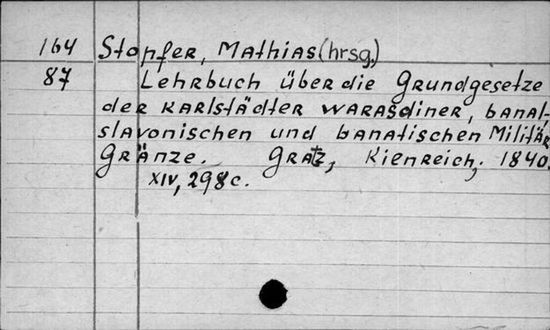 164 Stopfer, Mathias (hrsg.)
87 Lehrbuch über die Grundgesetze
der Karlstädter Warasdiner, banal-
slavonischen und banatischen Militär
Gränze. Gratz, Kienreich, 1840.
XIV, 298 c.